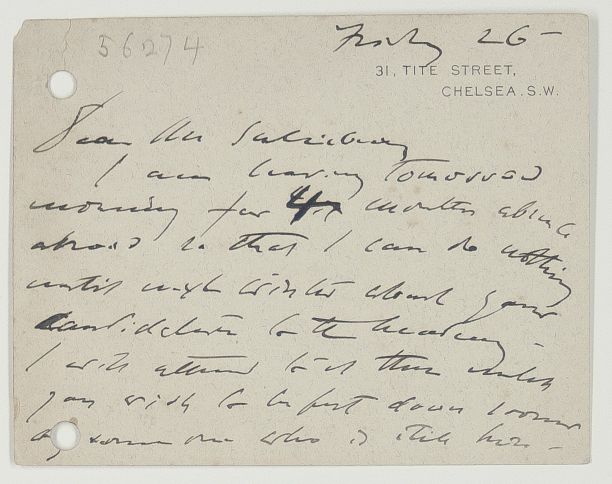 56274
Friday 26 -
31, TITE STREET,
CHELSEA. S.W.
Dear Mr Salisbury
I am leaving tomorrow
morning for 4 months absence
abroad so that I can do nothing
until next winter about your
candidature to the Academy -
I will attend to it then unless
you wish to be put down sooner
by some one who is still here -